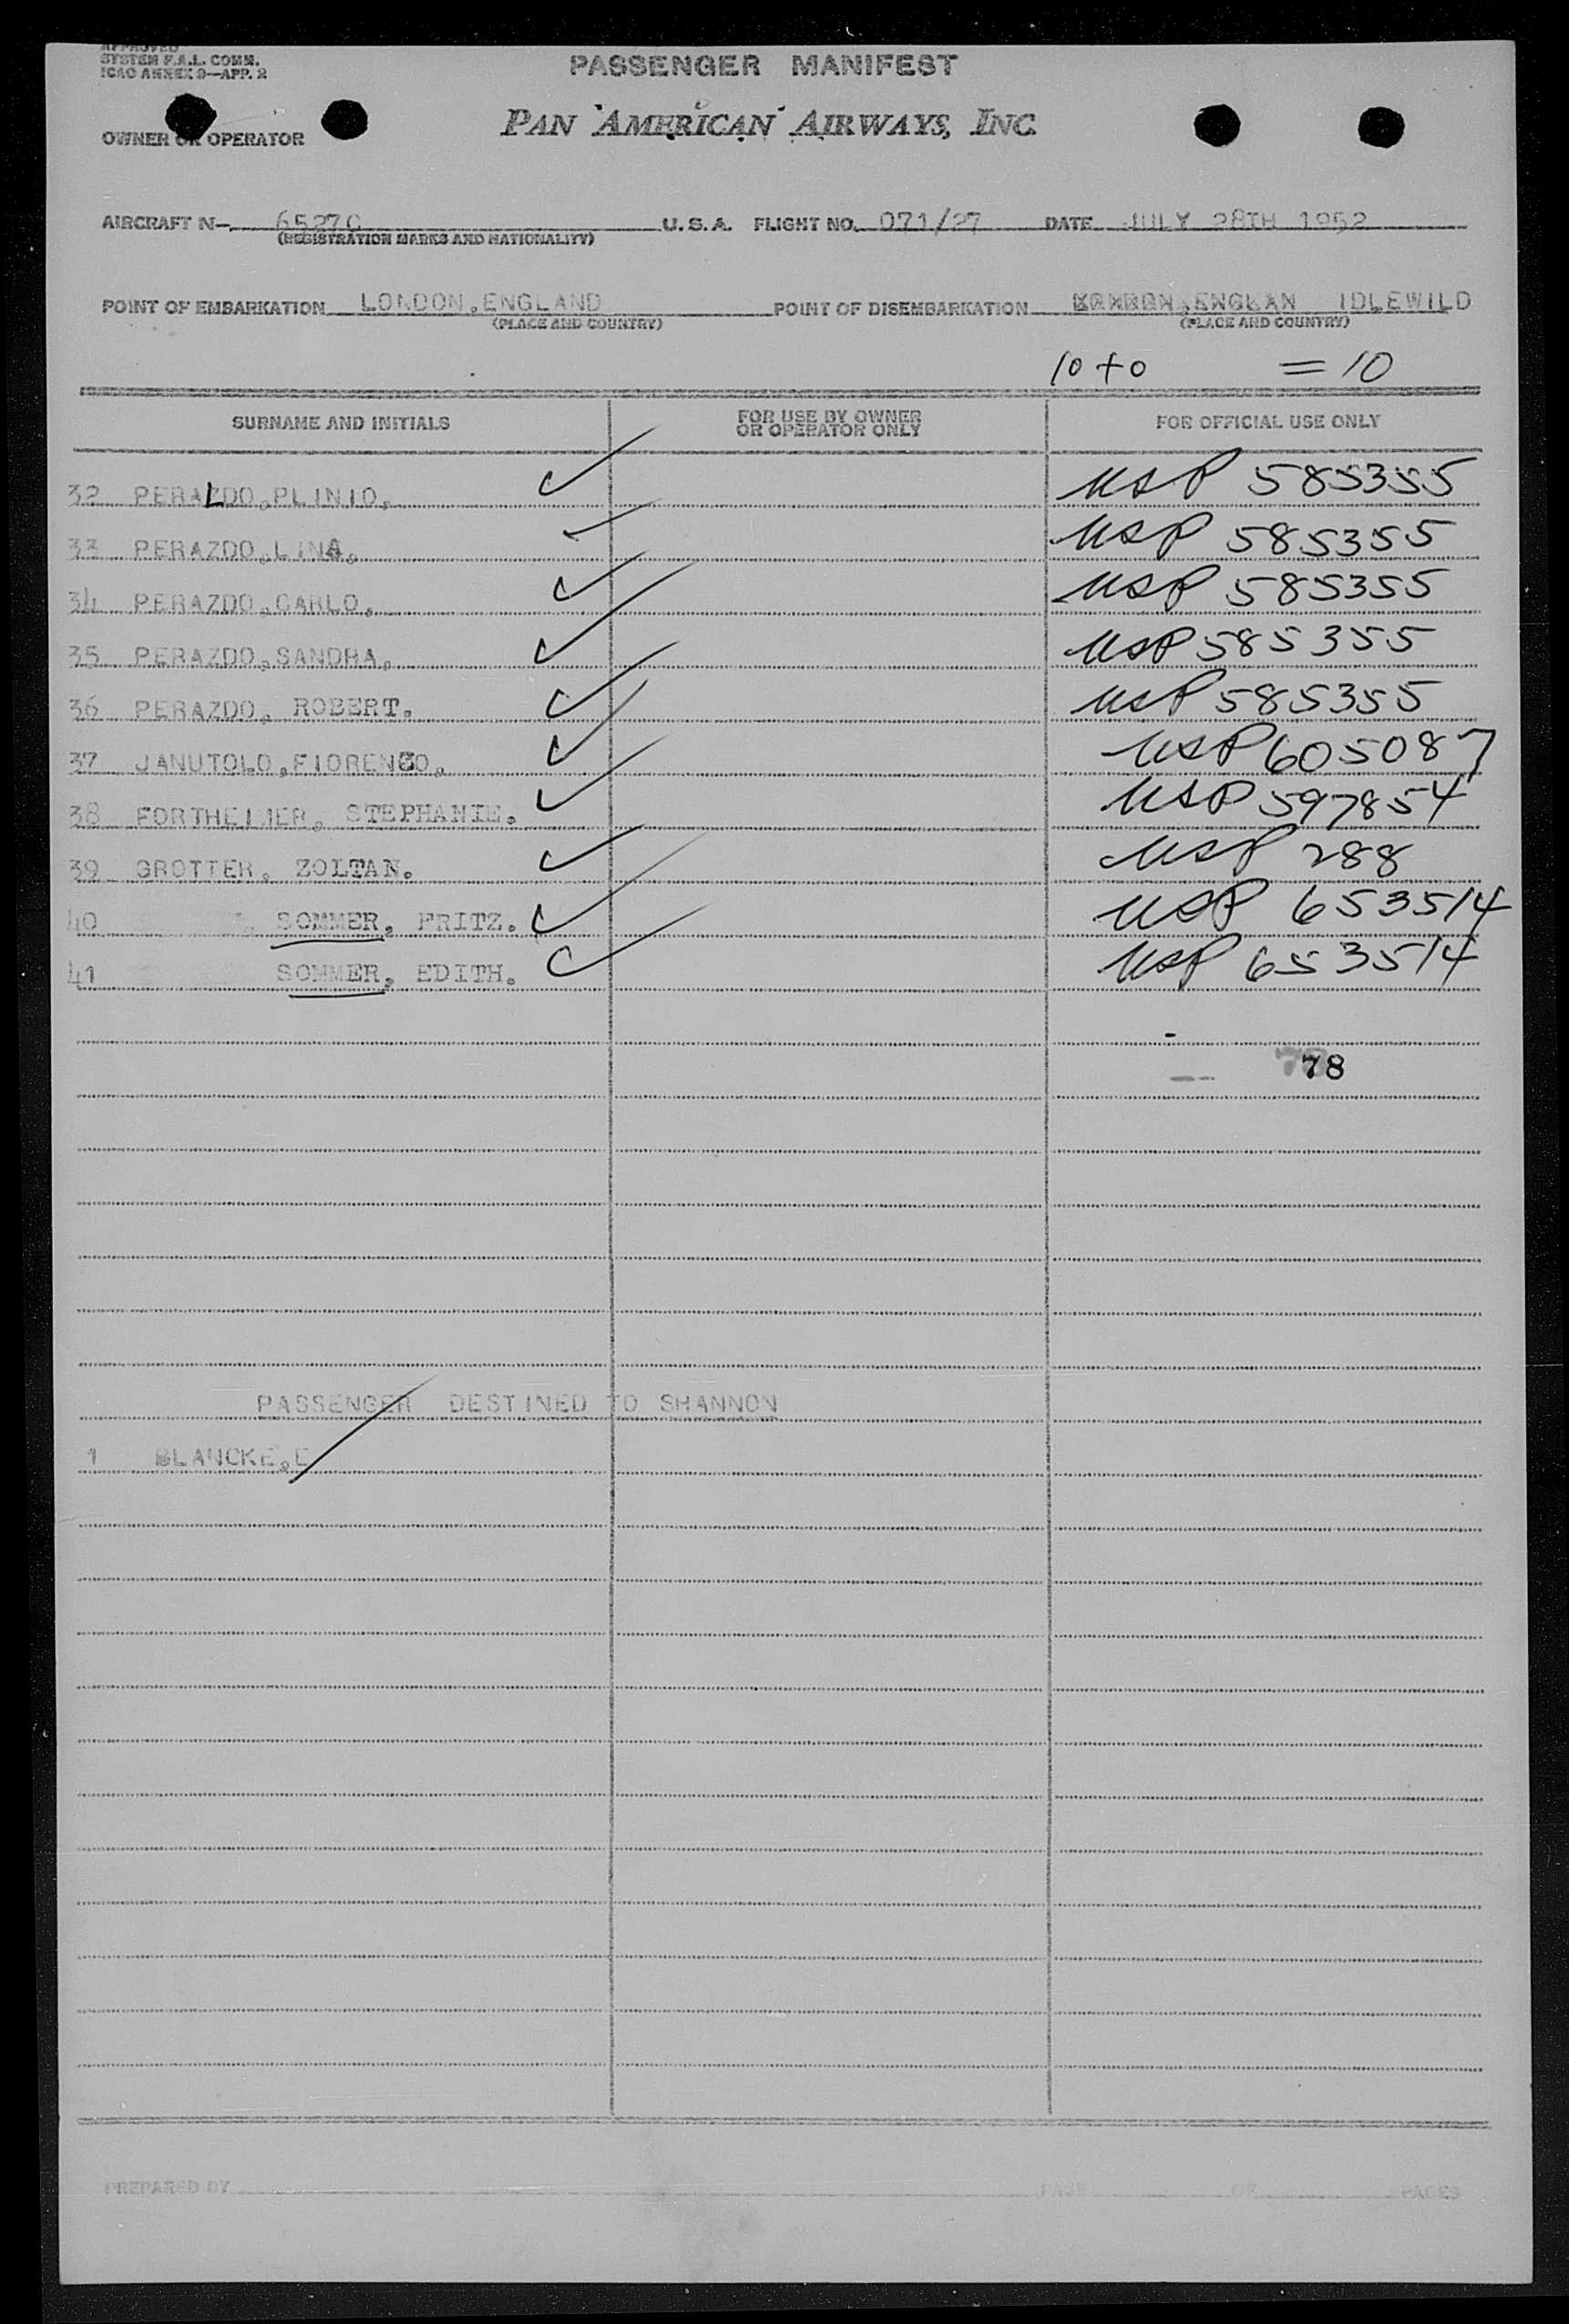 APPROVED
SYSTEM F.A.L. COMM.
ICAO ANNEX 9—APP. 2
PASSENGER MANIFEST
OWNER OR OPERATOR
PAN AMERICAN AIRWAYS, INC.
AIRCRAFT N— 6527C U.S.A. FLIGHT NO. 071/27 DATE JULY 28TH 1952
(REGISTRATION MARKS AND NATIONALITY)
POINT OF EMBARKATION LONDON,ENGLAND POINT OF DISEMBARKATION IDLEWILD
(PLACE AND COUNTRY) (PLACE AND COUNTRY)
10 + 0 = 10
SURNAME AND INITIALS FOR USE BY OWNER OR OPERATOR ONLY FOR OFFICIAL USE ONLY
32 PERALDO,PLINIO, ✓ USP 585355
33 PERAZDO,LINA, ✓ USP 585355
34 PERAZDO,CARLO, ✓ USP 585355
35 PERAZDO,SANDRA, ✓ USP 585355
36 PERAZDO, ROBERT. ✓ USP 585355
37 JANUTOLO,FIORENZO, ✓ USP 605087
38 FORTHEIMER, STEPHANIE. ✓ USP 597854
39 GROTTER, ZOLTAN. ✓ USP 288
40 SOMMER, FRITZ. ✓ USP 653514
41 SOMMER, EDITH. ✓ USP 653514
78
PASSENGER DESTINED TO SHANNON
1 BLANCKE,E
PREPARED BY PAGE OF PAGES